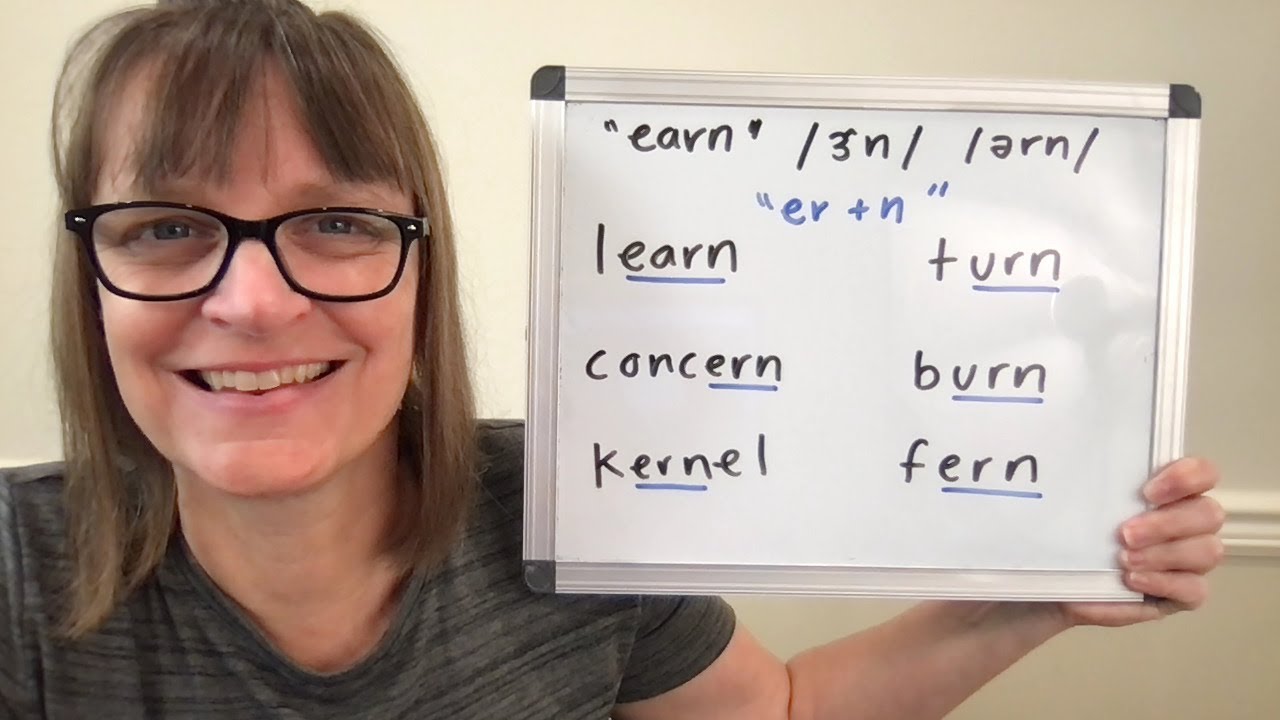 "earn" /ɝn/ /ərn/
"er + n"
learn turn
concern burn
kernel fern